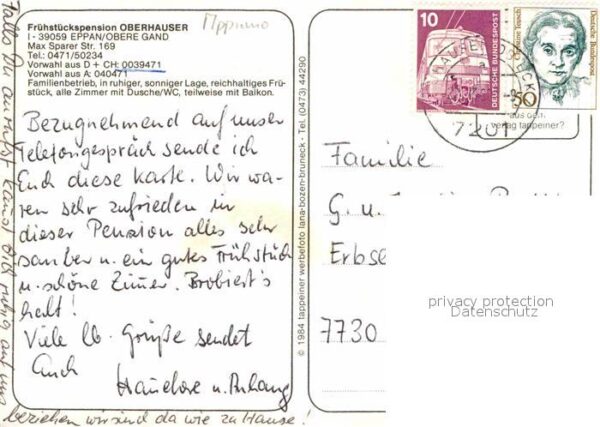 Frühstückspension OBERHAUSER
I - 39059 EPPAN/OBERE GAND
Max Sparer Str. 169
Tel.: 0471/50234
Vorwahl aus D + CH: 0039471
Vorwahl aus A: 040471
Familienbetrieb, in ruhiger, sonniger Lage, reichhaltiges Frü-
stück, alle Zimmer mit Dusche/WC, teilweise mit Balkon.
Bezugnehmend auf unser
Telefongespräch sende ich
Euch diese Karte. Wir wa-
ren sehr zufrieden in
dieser Pension alles sehr
sauber u. ein gutes Frühstück
u. schöne Zimmer. Probiert's
halt!
Viele lb. Grüße sendet
Euch
Hannelore u. Anhang
Hallo Du anrufst kannst Dich ruhig auf uns
beziehen wir sind da wie zu Hause!
© 1984 tappeiner werbefoto lana-bozen-bruneck - Tel. (0473) 44290
10
DEUTSCHE BUNDESPOST
50
Deutsche Bundespost
7201
verlag tappeiner?
Familie
G. u.
Erbse
7730
privacy protection
Datenschutz